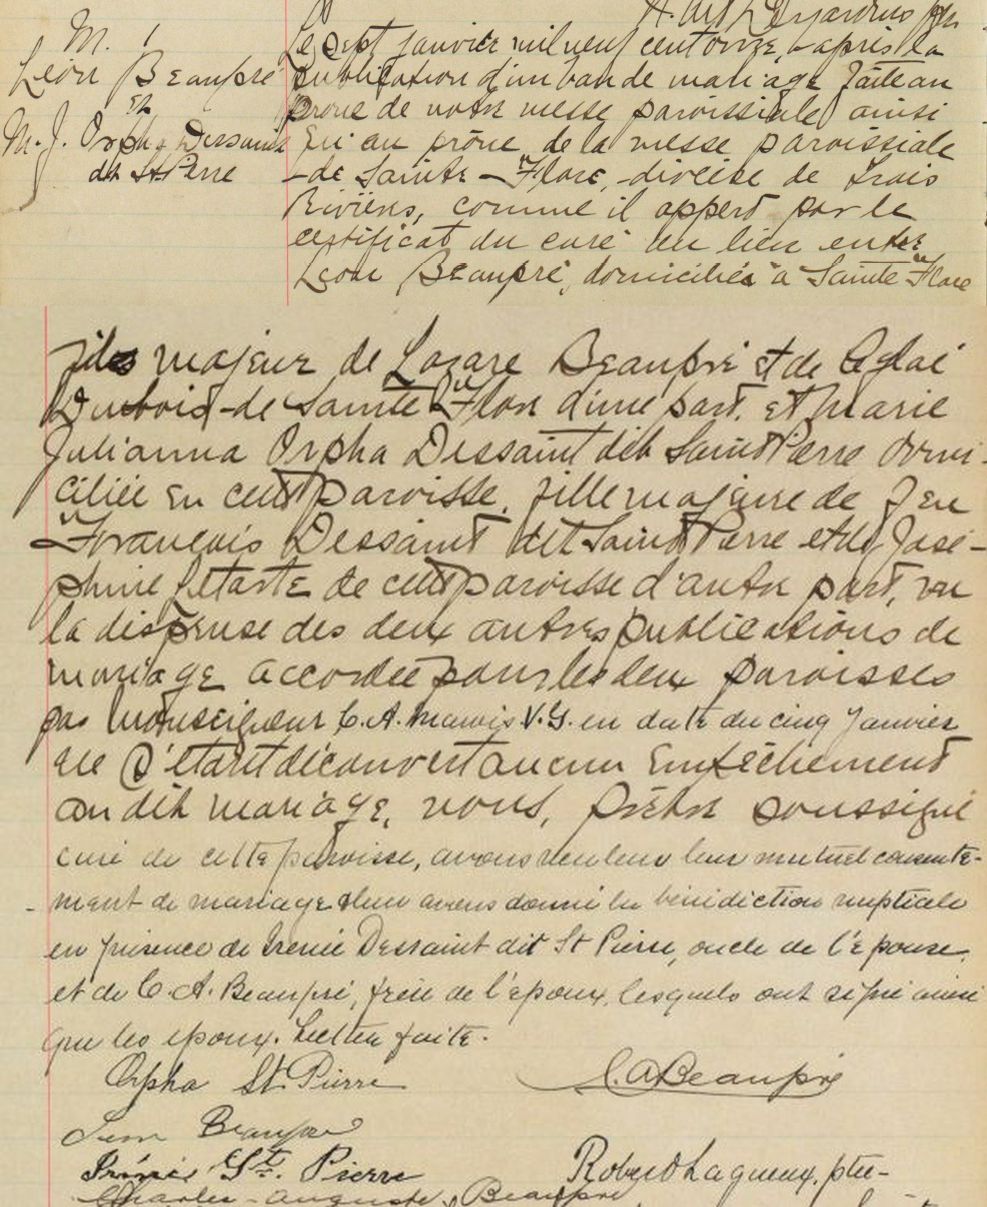 H. Arth Desjardins ptre
M. 1
Léon Beaupré
et
M. J. Orpha Dessaint
dit St. Pierre
Le sept janvier mil neuf cent onze, après la
publication d'un ban de mariage faite au
prône de notre messe paroissiale ainsi
qu'au prône de la messe paroissiale
de Sainte-Flore, diocèse de Trois
Rivières, comme il appert par le
certificat du curé du lieu entre
Léon Beaupré, domicilié à Sainte Flore
fils majeur de Lazare Beaupré et de Aglaé
Dubois de Sainte Flore d'une part, et Marie
Julianna Orpha Dessaint dit Saint Pierre domi-
ciliée en cette paroisse, fille majeure de feu
François Dessaint dit Saint Pierre et de José-
phine Letarte de cette paroisse d'autre part, vu
la dispense des deux autres publications de
mariage accordée pour les deux paroisses
par Monseigneur C. A. Marois V. G. en date du cinq janvier
ne s'étant découvert aucun empêchement
au dit mariage, nous, prêtre soussigné
curé de cette paroisse, avons reçu leur mutuel consente-
ment de mariage et leur avons donné la bénédiction nuptiale
en présence de Irénée Dessaint dit St Pierre, oncle de l'épouse,
et de C. A. Beaupré, frère de l'époux, lesquels ont signé ainsi
que les époux. Lecture faite.
Orpha St. Pierre
C. A Beaupré
Leon Beaupré
Irénée St. Pierre
Robert Lagueux, ptre-
Charles-Auguste Beaupré